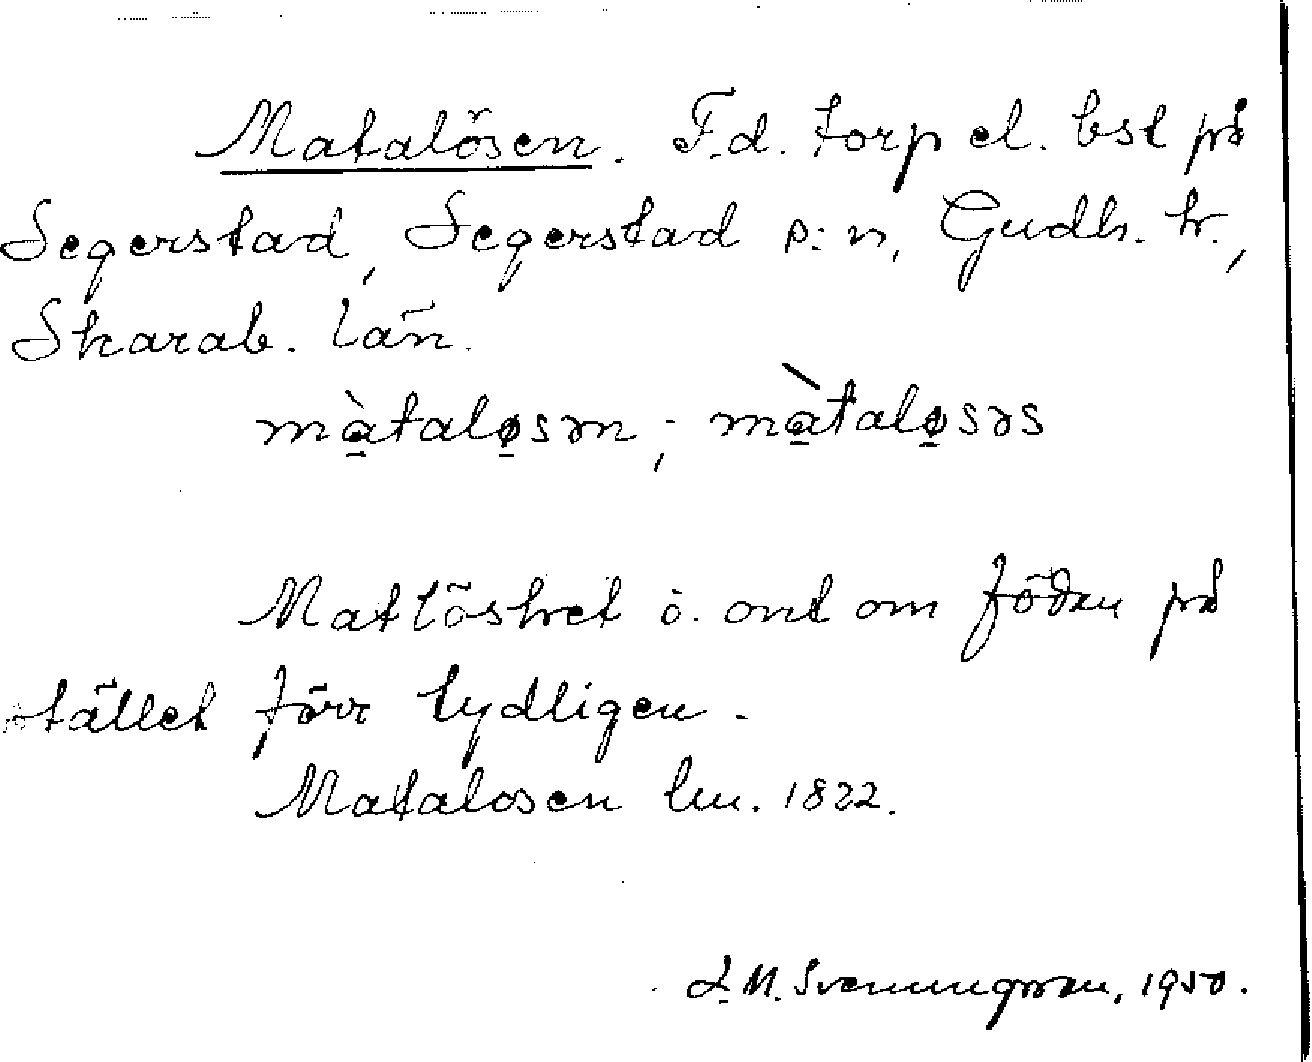 Matalösen. F.d. torp el. bst på
Segerstad, Segerstad s:n, Gudh. hr.,
Skarab. län.
màtaløsən; màtaløsəs
Matlöshet o. ont om födan på
stället förr tydligen.
Matalosen hu. 1822.
L.M. Svenungsson, 1950.